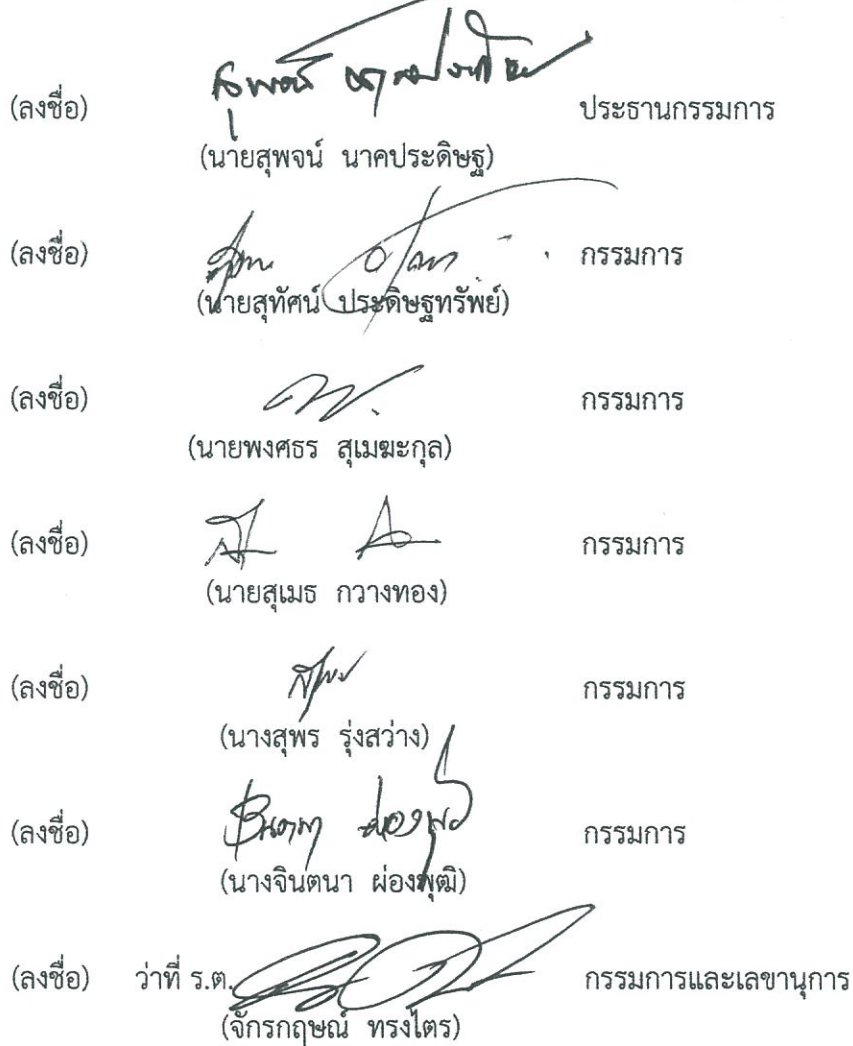 (ลงชื่อ) ประธานกรรมการ
(นายสุพจน์ นาคประดิษฐ)
(ลงชื่อ) กรรมการ
(นายสุทัศน์ ประดิษฐทรัพย์)
(ลงชื่อ) กรรมการ
(นายพงศธร สุเมฆะกุล)
(ลงชื่อ) กรรมการ
(นายสุเมธ กวางทอง)
(ลงชื่อ) กรรมการ
(นางสุพร รุ่งสว่าง)
(ลงชื่อ) กรรมการ
(นางจินตนา ผ่องพุฒิ)
(ลงชื่อ) ว่าที่ ร.ต. กรรมการและเลขานุการ
(จักรกฤษณ์ ทรงไตร)